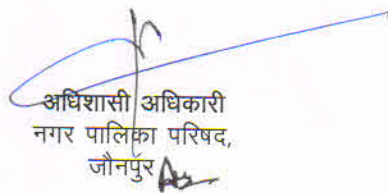 अधिशासी अधिकारी
नगर पालिका परिषद,
जौनपुर